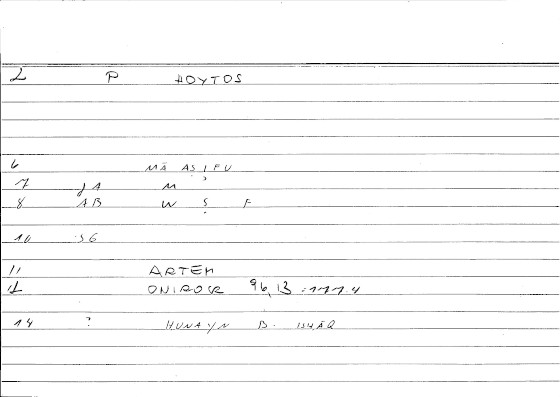 2 P HOYTOS
6 MĀ ASIFU
7 JA M
8 AB W Ṣ F
10 SG
11 ARTEM
12 ONIROCR 96,13 :177.4
14 ? HUNAYN B. ISHĀQ